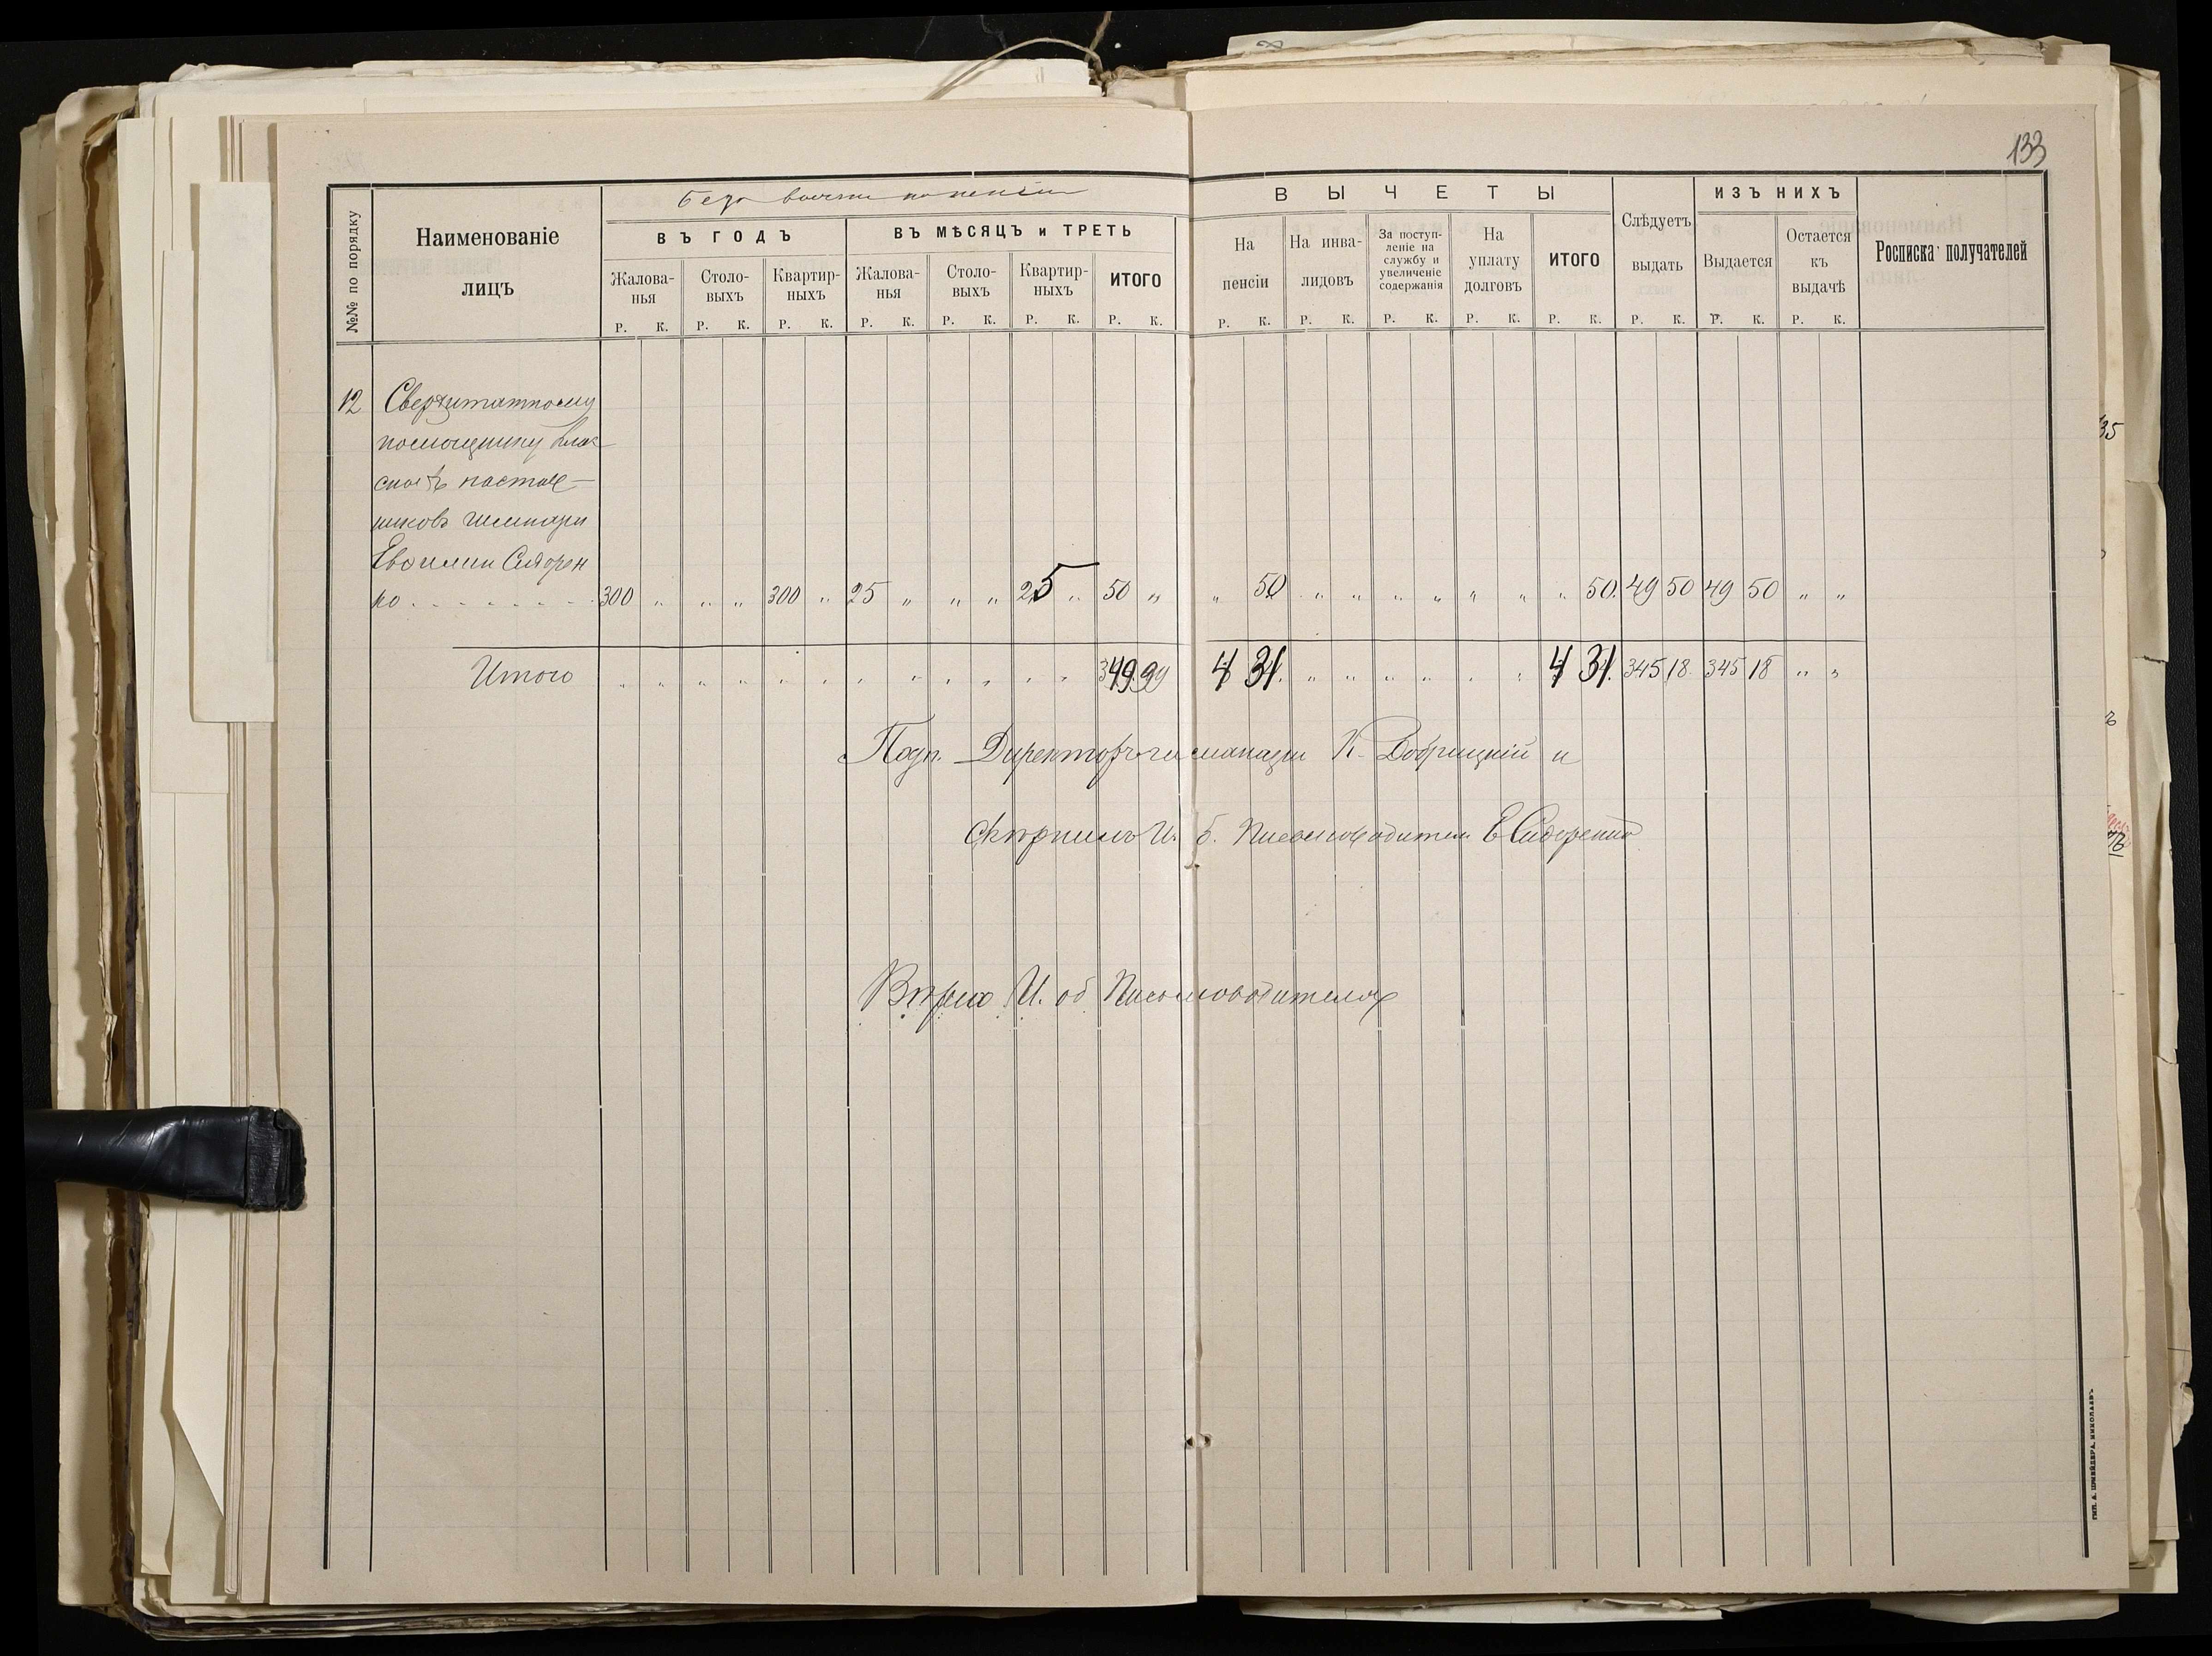 133
№№ по порядку
Наименованіе
лицъ
ВЪ ГОДЪ
Жалова-
нья
Столо-
выхъ
Квартир-
ныхъ
ВЪ МѢСЯЦЪ и ТРЕТЬ
Жалова-
нья
Столо-
выхъ
Квартир-
ныхъ
ИТОГО
ВЫЧЕТЫ
На
пенсіи
На инва-
лидовъ
За поступ-
леніе на
службу и
увеличеніе
содержанія
На
уплату
долговъ
ИТОГО
Слѣдуетъ
выдать
ИЗЪ НИХЪ
Выдается
Остается
къ
выдачѣ
Росписка получателей
Р. К. Р. К. Р. К. Р. К. Р. К. Р. К. Р. К. Р. К. Р. К. Р. К. Р. К. Р. К. Р. К. Р. К. Р. К.
12 Сверхштатному
помощнику клас
сныхъ настав-
никовъ гимназіи
Сидорен
ко 300 " " " 300 " 25 " " " 25 " 50 " " 50 " " " " " " " 50. 49 50 49 50 " "
Итого " " " " " " " " " " " " 349 99 4 31. " " " " " " 4 31. 345 18. 345 18 " "
Подп. Директоръ гимназіи К. Добрицкій и
скрѣпилъ И. о. Письмоводителя Е Сидоренко
Вѣрно И. об Письмоводителя
ТИП. А. ШНЕЙДЕРА, НИКОЛАЕВЪ